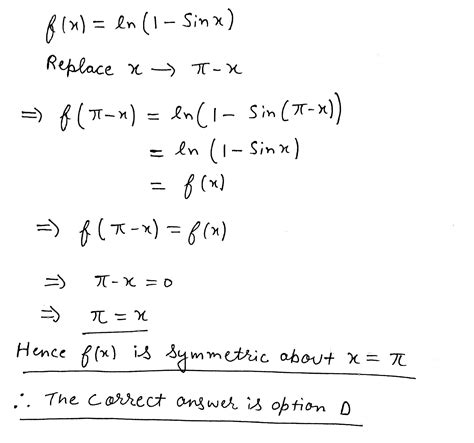 f(x) = ln(1 - Sin x)
Replace x → π-x
⇒ f(π-x) = ln(1 - Sin(π-x))
= ln (1 - Sin x)
= f(x)
⇒ f(π-x) = f(x)
⇒ π-x = 0
⇒ π = x
Hence f(x) is symmetric about x = π
∴ The correct answer is option D